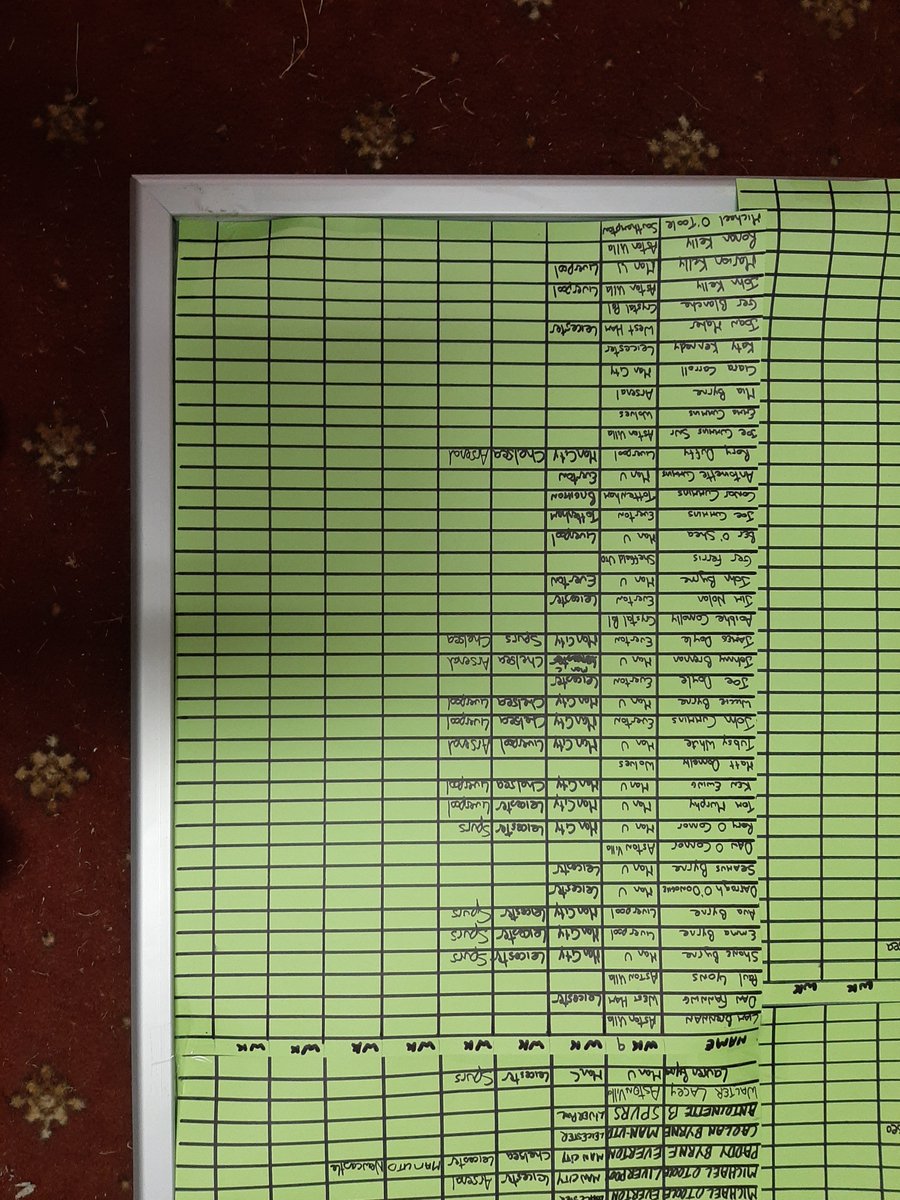 MICHAEL OTOOLE EVERTON LEICESTER
MICHAEL OTOOLE LIVERPOOL MAN CITY Leicester Arsenal
PADDY BYRNE EVERTON MAN CITY Chelsea Leicester MAN UTD Newcastle
CAOLAN BYRNE MAN-UTD LEICESTER
ANTOINETTE B SPURS LIVERPOOL
WALTER LACEY ASTON Villa
Lauren Byrne Man U Man C Leicester Spurs
NAME WK 9 WK WK WK WK WK WK WK
Liam BRENNAN Aston Villa
Dan FANNING West Ham Leicester
Paul Lyons Aston Villa
Shane Byrne Man U Man City Leicester Spurs
Emma Byrne Liverpool Man City Leicester Spurs
Ava Byrne Liverpool Man City Leicester Spurs
Darragh O'Donoghue Man U Leicester
Seamus Byrne Man U Leicester
Dan O Connor Aston Villa
Rory O Connor Man U Man City Leicester Spurs
Tom Murphy Man U Man City Leicester Liverpool
Ken Ewing Man U Man City Chelsea Liverpool
Matt Donnelly Wolves
Tubsy White Man U Man City Liverpool Arsenal
John Cummins Everton Man City Chelsea Liverpool
Willie Byrne Man U Man City Chelsea Liverpool
Joe Doyle Everton Leicester
Johnny Brennan Man U Man C Chelsea Arsenal
James Doyle Everton Man City Spurs Chelsea
Aoibhe Connolly Crystal Pal
Jim Nolan Everton Leicester
John Byrne Man U Everton
Ger Ferris Sheffield Utd
Ber O'Shea Man U Liverpool
Joe Cummins Everton Tottenham
Conor Cummins Tottenham
Antoinette Cummins Man U Everton
Rory Duffy Liverpool Man City Chelsea Arsenal
Joe Cummins Snr Aston Villa
Emma Cummins Wolves
Mia Byrne Arsenal
Ciara Carroll Man City
Katy Kennedy Leicester
Joan Maher West Ham Leicester
Ger Blanche Crystal Pal
John Kelly Aston Villa Liverpool
Marian Kelly Man U Liverpool
Ronan Kelly Aston Villa
Michael O'Toole Southampton
WK WK